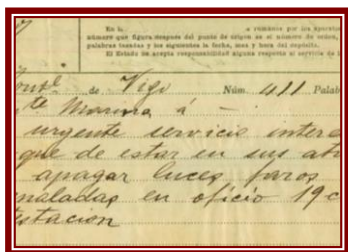 En la
a remanse por los aparatos
número que figura después del punto de origen es el número de orden,
palabras tasadas y los siguientes la fecha, mes y hora del depósito.
El Estado no acepta responsabilidad alguna respecto al servicio de
de Vigo Núm. 411 Palab
Marina á
urgente servicio intere
que de estar en sus atr
apagar luces faros
naladas en oficio 19 c
estacion